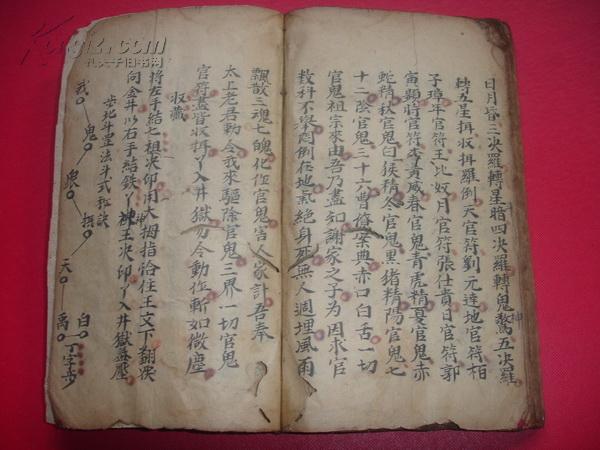 日月昏三次羅轉星暗四次羅轉鬼驚五次羅
轉五星拜收拜羅倒天官符劉元達地官符栢
子璋年官符王比奴月官符張仕貴日官符郭
寅顯將官符李黃咸春官鬼青虎精夏官鬼赤
蛇精秋官鬼白猴精冬官鬼黑猪精陽官鬼七
十二陰官鬼三十六曹僚案典赤口白舌一切
官鬼祖宗來由吾乃盡知謝家之子為因求官
教科不舉悶倒在地氣絕身死無人週埋風雨
飄散三魂七魄化作官鬼害人家計吾奉
太上老君勑令我來驅除官鬼三界一切官鬼
官符盡皆收拜丫入井獄勿令動作斬如微塵
收藏
將左手結七祖決印用大拇指治住王文下翻决
向金井以右手結鉄丫棟王决印丫入井獄蓋壓
步北斗罡法斗式秘訣
我 鬼 眼 拱 天 禹 白 丁字步